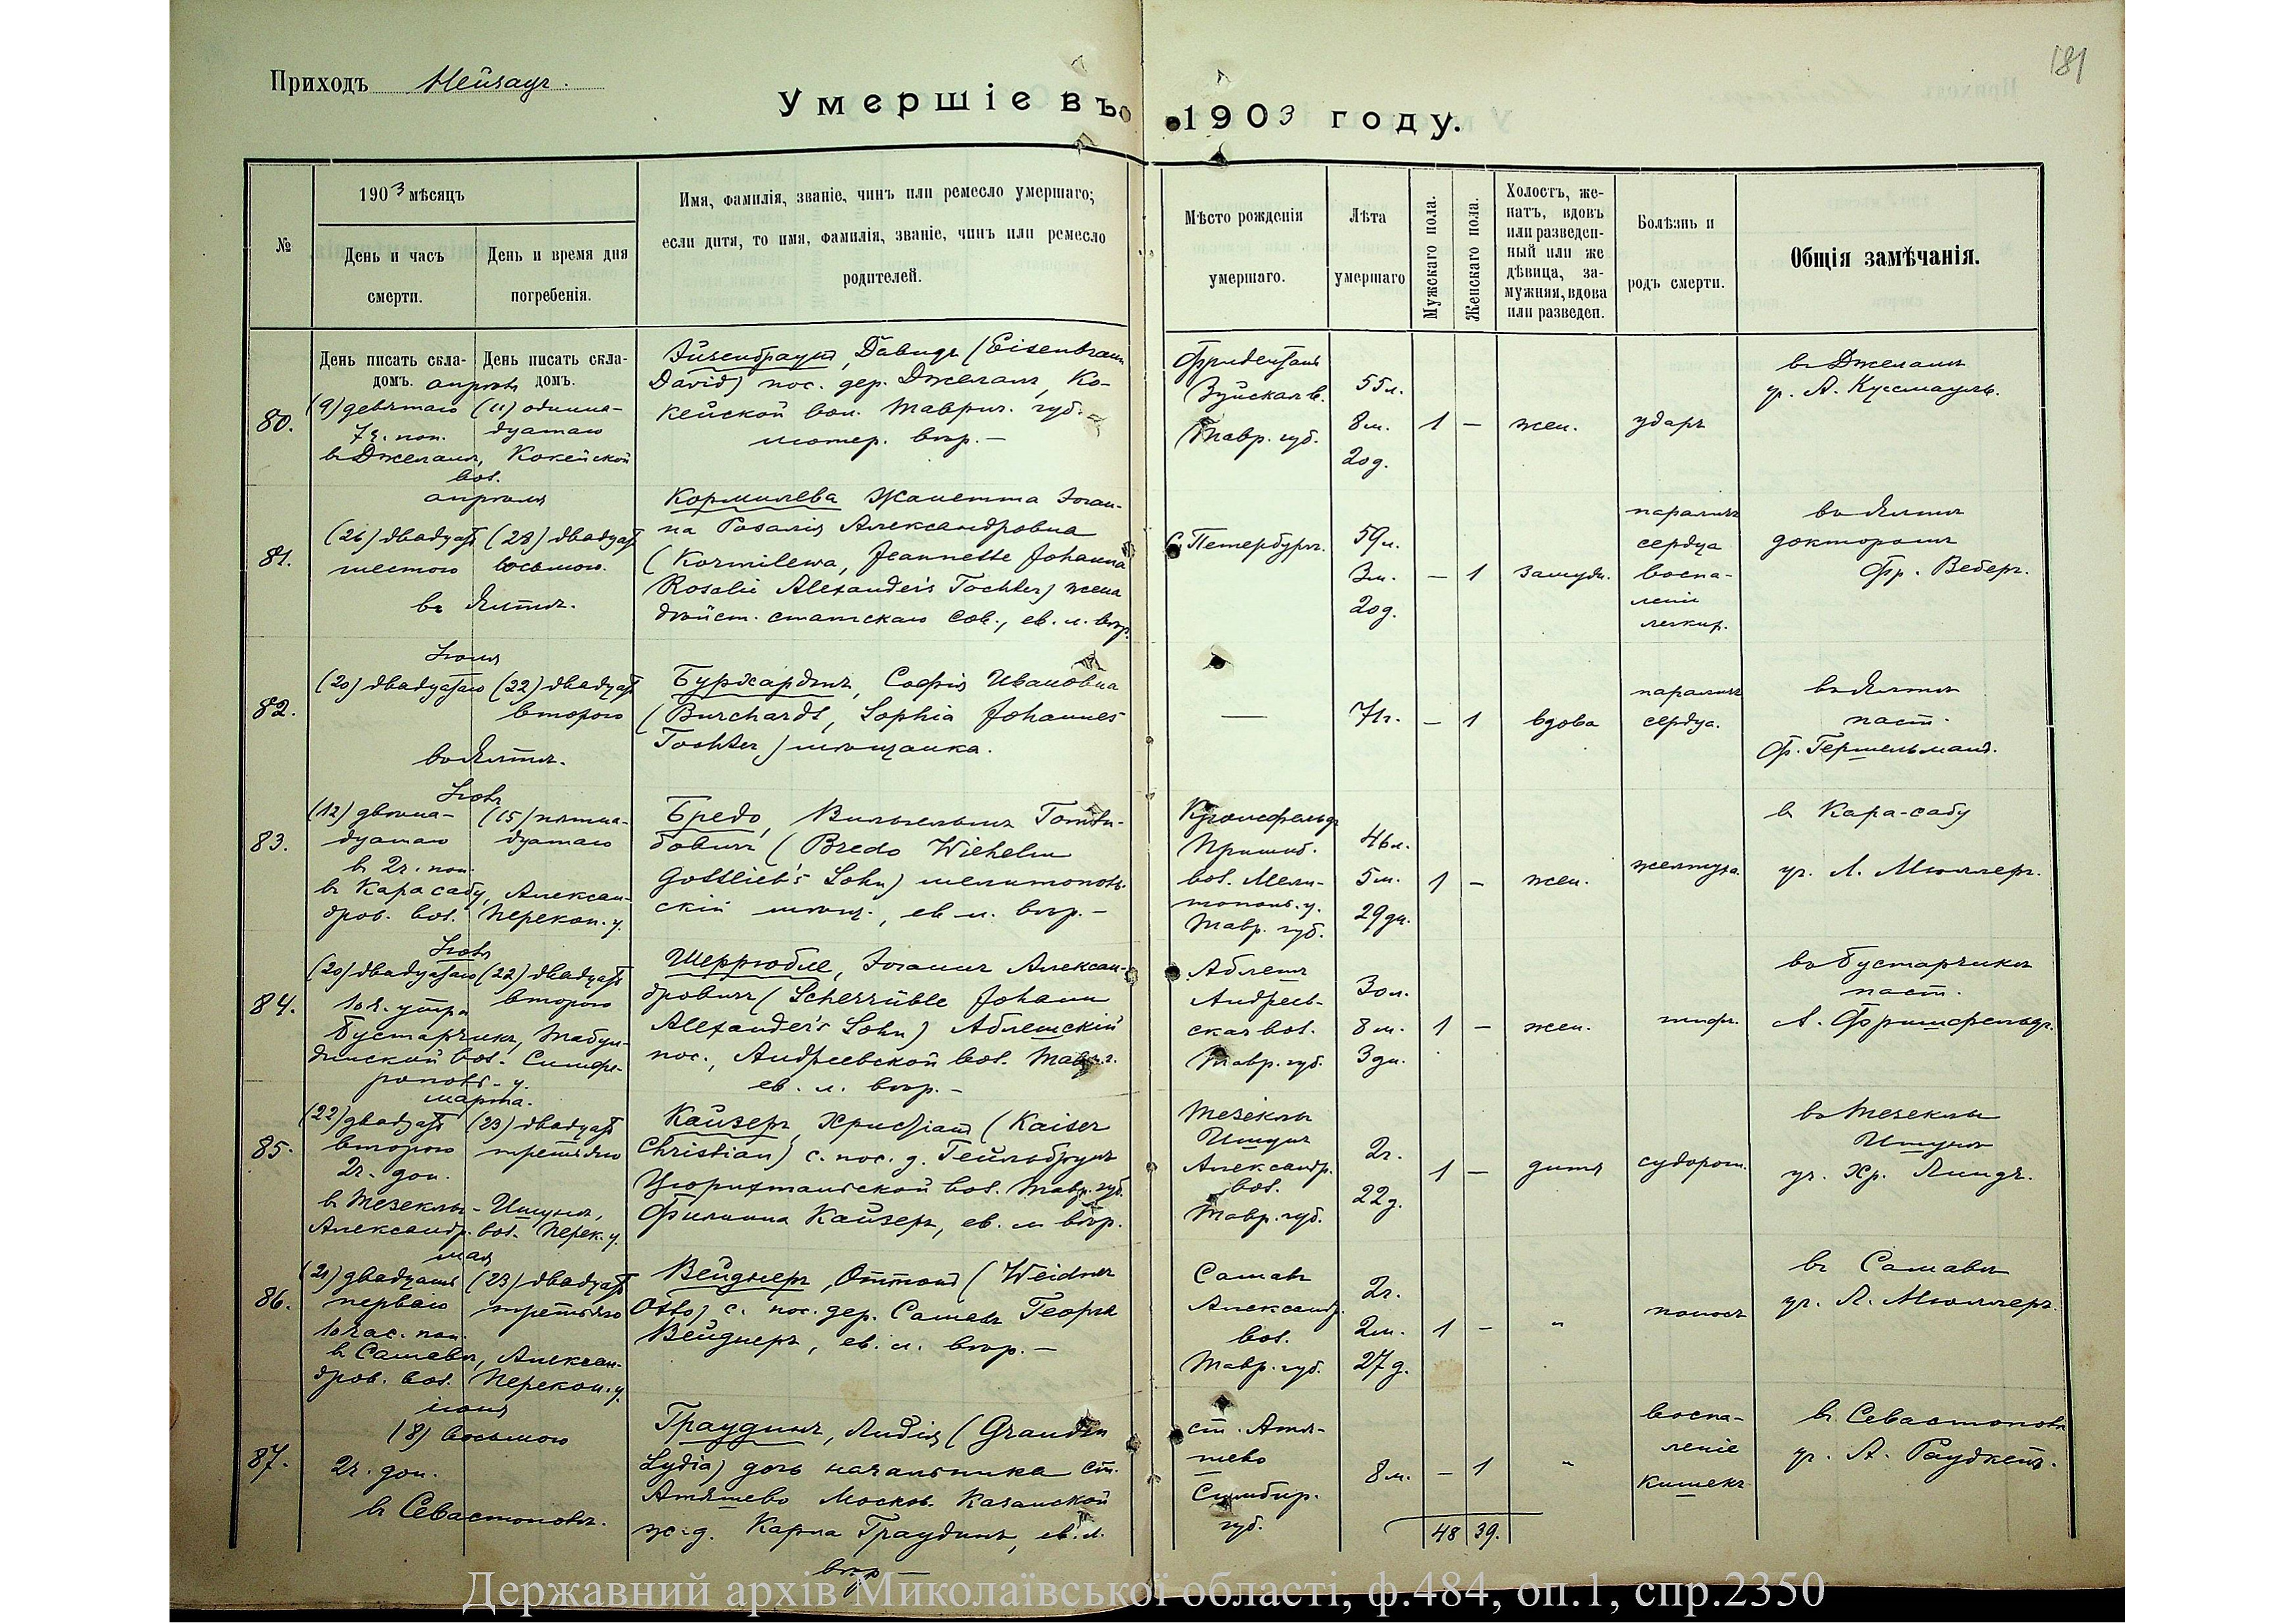 181
Приходъ Нейзацъ.
Умершіе въ 1903 году.
№
1903 мѣсяцъ
День и часъ
смерти.
День и время дня
погребенія.
Имя, фамилія, званіе, чинъ или ремесло умершаго;
если дитя, то имя, фамилія, званіе, чинъ или ремесло
родителей.
Мѣсто рожденія
умершаго.
Лѣта
умершаго
Мужскаго пола.
Женскаго пола.
Холостъ, же-
натъ, вдовъ
или разведен-
ный или же
дѣвица, за-
мужняя, вдова
или разведен.
Болѣзнь и
родъ смерти.
Общія замѣчанія.
День писать скла-
домъ.
День писать скла-
домъ.
апрѣля
80.
(9) девятаго
7 ч. поп.
(11) одинна-
дцатаго
в Джелалѣ, Кокейской
вол.
Эйзенбраунъ, Давидъ (Eisenbraun
David) пос. дер. Джелалъ, Ко-
кейской вол. Таврич. губ. –
лютер. вѣр. –
Фриденталь
Зуйская в.
Тавр. губ.
55 л.
8 м.
20 д.
1
–
жен.
ударъ
в Джелалѣ
у. А. Куссмауль.
апрѣля
81.
(26) двадцать
шестого
(28) двадцать
восьмого.
въ Ялтѣ.
Кормилева Жанетта Іоган-
на Розалія Александровна
(Kormilewa, Jeannette Johanna
Rosalie Alexander's Tochter) жена
дѣйст. статскаго сов., ев. л. вѣр.
С. Петербургъ.
59 л.
3 м.
20 д.
–
1
замужн.
параличъ
сердца
воспа-
леніе
легких.
въ Ялтѣ
докторомъ
Фр. Веберъ.
Іюля
82.
(20) двадцатаго
(22) двадцать
второго
въ Ялтѣ.
Бурхардтъ, Софія Ивановна
(Burchardt, Sophia Johannes
Tochter) мѣщанка.
—
71 г.
–
1
вдова
параличъ
сердца.
въ Ялтѣ
паст.
Ф. Гершельманъ.
83.
(12) двѣна-
дцатаго
в 2 ч. поп.
(15) пятна-
дцатаго
в Карасабу, Алексан-
дров. вол. Перекоп. у.
Бредо, Вильгельмъ Готли-
бовичъ (Bredo Wilhelm
Gottlieb's Sohn) мелитополь-
скій мѣщ., ев. л. вѣр. –
Кронсфельдъ
Пришиб.
вол. Мели-
топол. у.
Тавр. губ.
46 л.
5 м.
29 дн.
1
–
жен.
желтуха
в Кара-сабу
уч. Л. Мюллеръ.
84.
(20) двадцатаго
10 ч. утра
(22) двадцать
второго
Бустарчикъ, Табул-
динской вол. Симфе-
ропольс. у.
Шеррюбле, Іоганнъ Алексан-
дровичъ (Scherrüble Johann
Alexander's Sohn) Аблешскій
пос., Андреевской вол. Тавр. г.
ев. л. вѣр. –
Аблешъ
Андреев-
ская вол.
Тавр. губ.
30 л.
8 м.
3 дн.
1
–
жен.
тифъ.
въ Бустарчикѣ
паст.
А. Фришфельдъ.
марта.
85.
(22) двадцать
второго
2 ч. доп.
(23) двадцать
третьяго
в Тезеклы-Ишунѣ,
Александр. вол. Перек. у.
Кайзеръ, Христіанъ (Kaiser
Christian) с. пос. д. Гейльбрунъ
Цюрихтальской вол. Тавр. губ.
Филиппа Кайзеръ, ев. л. вѣр.
Тезеклы
Ишунь
Александр.
вол.
Тавр. губ.
2 г.
22 д.
1
–
дитя
судорог.
въ Тезеклы
Ишунѣ
уч. Хр. Линдъ.
мая
86.
(21) двадцать
перваго
10 час. поп.
(23) двадцать
третьяго
в Сашавѣ, Алексан-
дров. вол. Перекоп. у.
Вейднеръ, Оттонъ (Weidner
Otto) с. пос. дер. Сашавъ Георга
Вейднеръ, ев. л. вѣр. –
Сашавъ
Александр.
вол.
Тавр. губ.
2 г.
2 м.
27 д.
1
–
"
поносъ
въ Сашавѣ
уч. Л. Мюллеръ.
87.
(8) восьмого
2 ч. доп.
въ Севастополѣ.
Граудинъ, Лидія (Graudin
Lydia) дочь начальника ст.
Атяшево Москов. Казанской
ж. д. Карла Граудинъ, ев. л.
вѣр –
ст. Атя-
шево
Симбир.
губ.
8 м.
–
1
"
воспа-
леніе
кишекъ
въ Севастополѣ
48 39.
Державний архів Миколаївської області, ф.484, оп.1, спр.2350